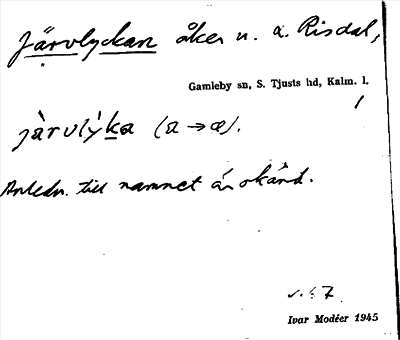 Järvlyckan åker n. o. Risdal,
Gamleby sn, S. Tjusts hd, Kalm. l.
jàrvlýka (a → æ).
Anledn. till namnet är okänd.
Ivar Modéer 1945